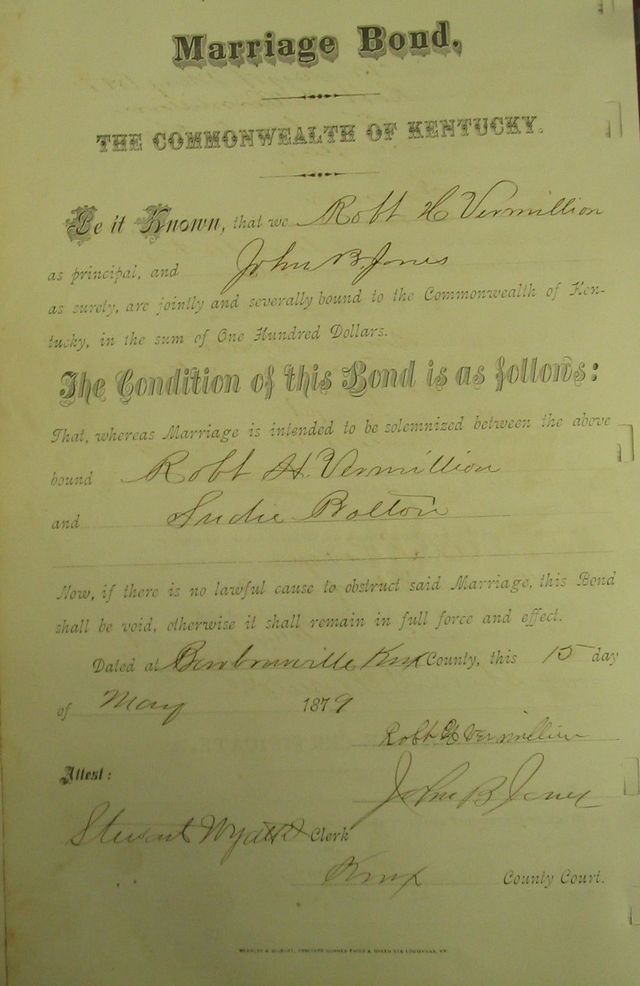 Marriage Bond.
THE COMMONWEALTH OF KENTUCKY.
Be it Known, that we Robt H Vermillion
as principal, and John B. Jones
as surety, are jointly and severally bound to the Commonwealth of Ken-
tucky, in the sum of One Hundred Dollars.
The Condition of this Bond is as follows:
That, whereas Marriage is intended to be solemnized between the above
bound Robt H. Vermillion
and Sudie Bolton
Now, if there is no lawful cause to obstruct said Marriage, this Bond
shall be void, otherwise it shall remain in full force and effect.
Dated at Barbourville Knox County, this 15 day
of May 1879
Robt H Vermillion
Attest:
John B Jones
Stewart Wyatt Clerk
Knox County Court.